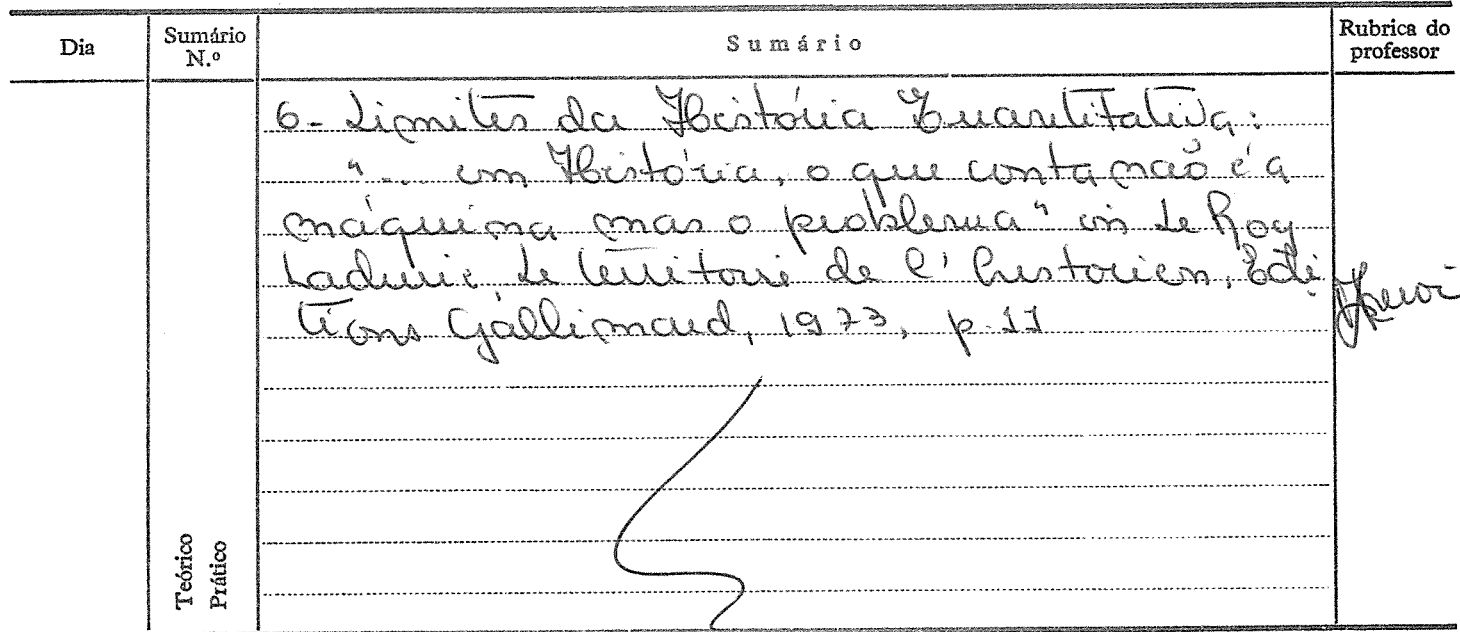 Dia
Sumário N.º
Sumário
Rubrica do professor
6- Limites da História Quantitativa:
"... em História, o que conta não é a
máquina mas o problema" in Le Roy
Ladurie, Le territoire de l'historien, Edi
tions Gallimard, 1973, p. 11
Teórico
Prático